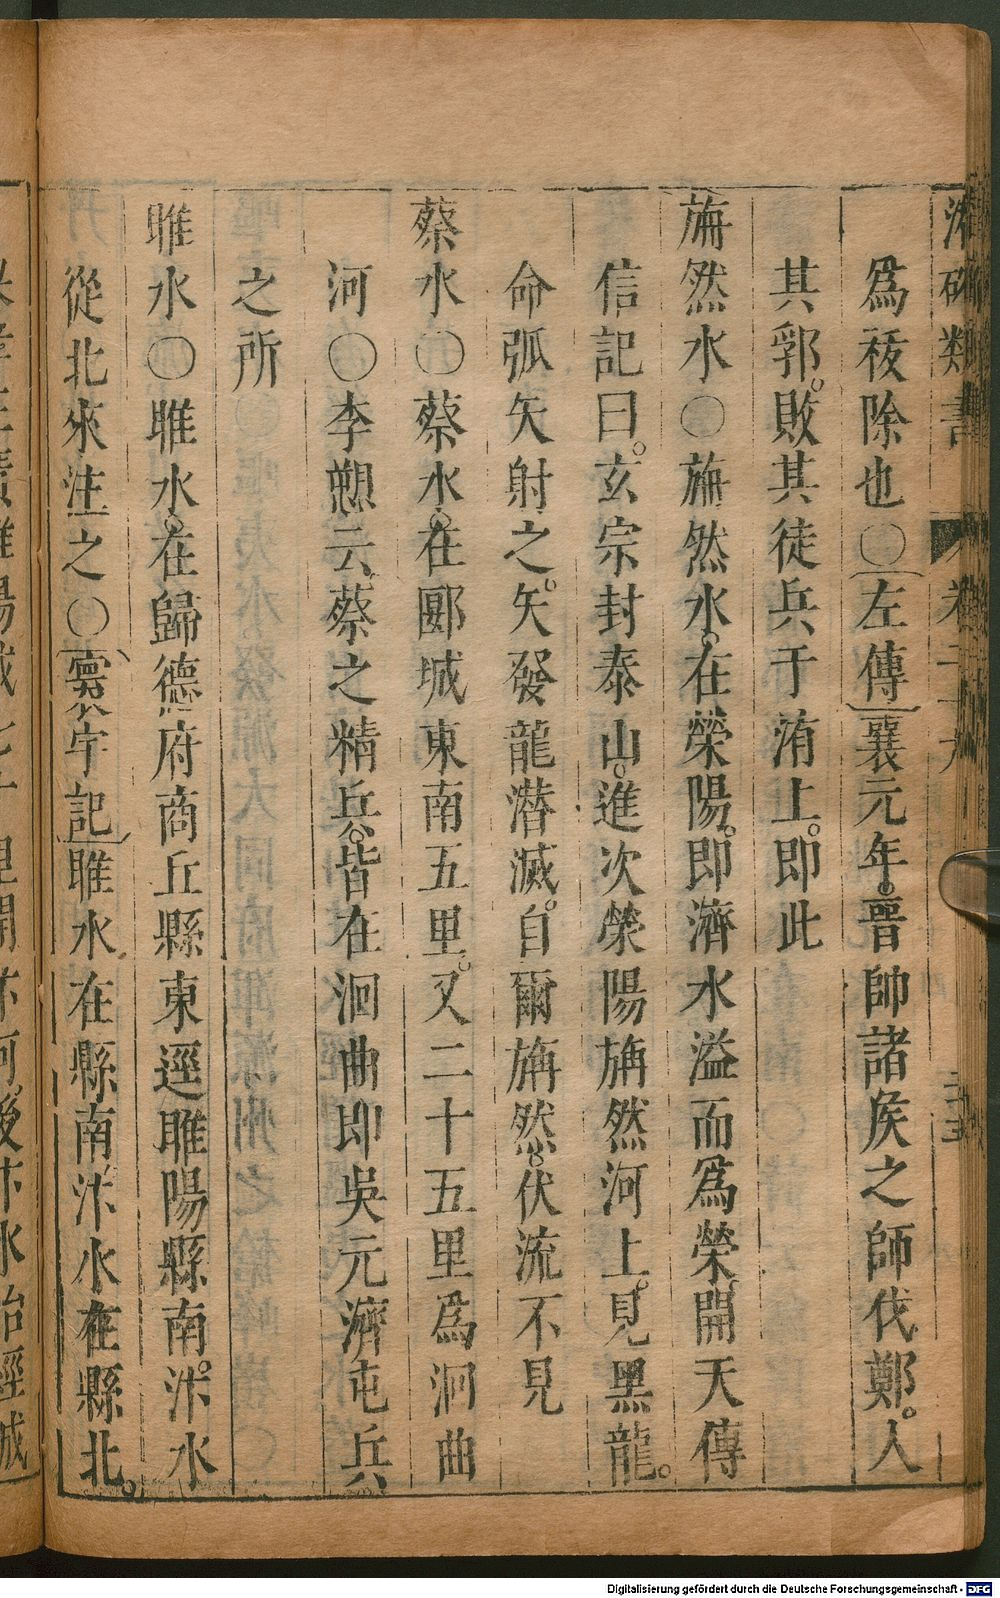 類書
爲䄟除也〇左傳襄元年晉帥諸侯之師伐鄭人
其郛敗其徒兵于洧上即此
旃然水〇旃然水在滎陽即濟水溢而爲滎開天傳
信記曰玄宗封泰山進次滎陽旃然河上見黑龍
命弧矢射之矢發龍潜滅自爾旃然伏流不見
蔡水〇蔡水在郾城東南五里又二十五里爲洄曲
河〇李愬云蔡之精兵皆在洄曲即吳元濟屯兵
之所
睢水〇睢水在歸德府商丘縣東逕睢陽縣南汴水
從北來注之〇寰宇記睢水在縣南汴水在縣北
Digitalisierung gefördert durch die Deutsche Forschungsgemeinschaft - DFG